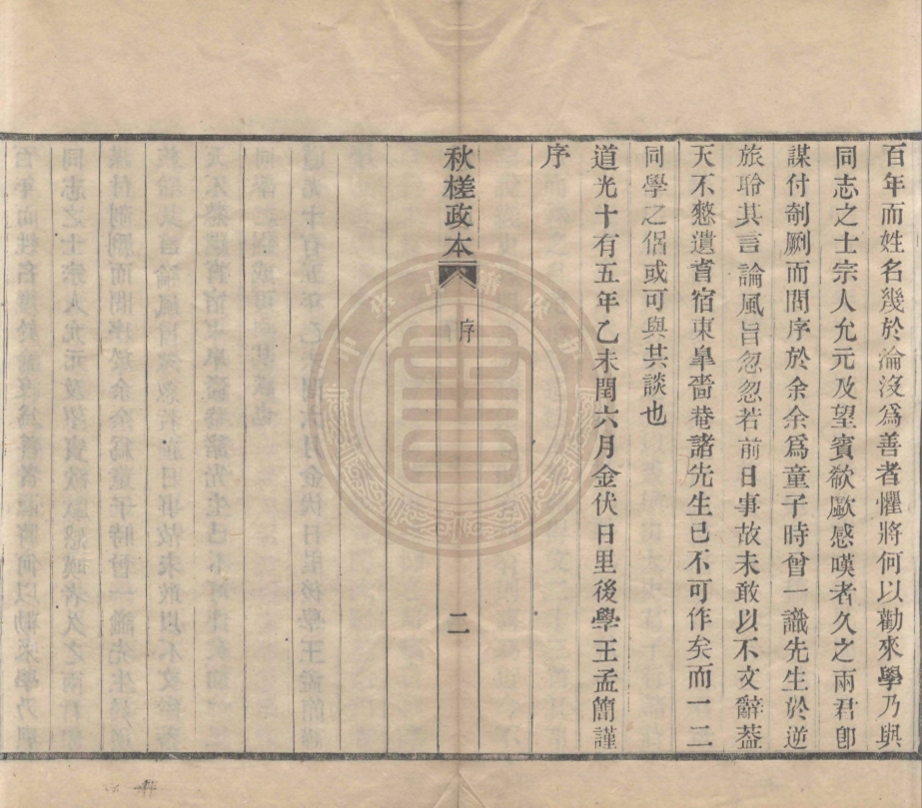 百年而姓名幾於淪沒爲善者懼將何以勸來學乃與
同志之士宗人允元及望賓欷歔感嘆者久之兩君卽
謀付剞劂而問序於余余爲童子時曾一識先生於逆
旅聆其言論風旨忽忽若前日事故未敢以不文辭葢
天不憗遺耆宿東臯嗇菴諸先生已不可作矣而一二
同學之侶或可與其談也
道光十有五年乙未閏六月金伏日里後學王孟簡謹
序
秋槎政本 序 二